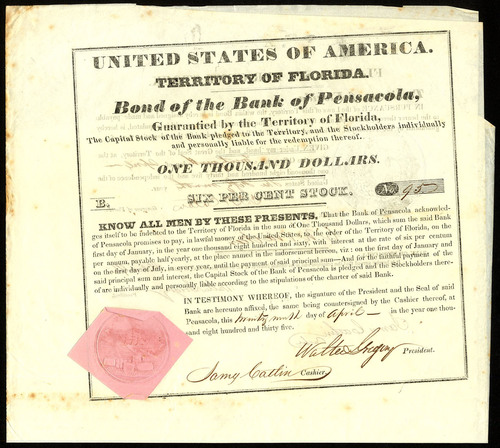 UNITED STATES OF AMERICA.
TERRITORY OF FLORIDA.
Bond of the Bank of Pensacola,
Guarantied by the Territory of Florida,
The Capital Stock of the Bank pledged to the Territory, and the Stockholders individually
and personally liable for the redemption thereof.
ONE THOUSAND DOLLARS.
SIX PER CENT STOCK.
B. No. 95
KNOW ALL MEN BY THESE PRESENTS, That the Bank of Pensacola acknowled-
ges itself to be indebted to the Territory of Florida in the sum of One Thousand Dollars, which sum the said Bank
of Pensacola promises to pay, in lawful money of the United States, to the order of the Territory of Florida, on the
first day of January, in the year one thousand eight hundred and sixty, with interest at the rate of six per centum
per annum, payable half yearly, at the place named in the indorsement hereon, viz: on the first day of January and
on the first day of July, in every year, until the payment of said principal sum—And for the faithful payment of the
said principal sum and interest, the Capital Stock of the Bank of Pensacola is pledged and the Stockholders there-
of are individually and personally liable according to the stipulations of the charter of said Bank.
IN TESTIMONY WHEREOF, the signature of the President and the Seal of said
Bank are hereunto affixed, the same being countersigned by the Cashier thereof, at
Pensacola, this twenty ninth day of April — in the year one thou-
sand eight hundred and thirty five.
Walter Gregory President.
Jamy Catlin Cashier.